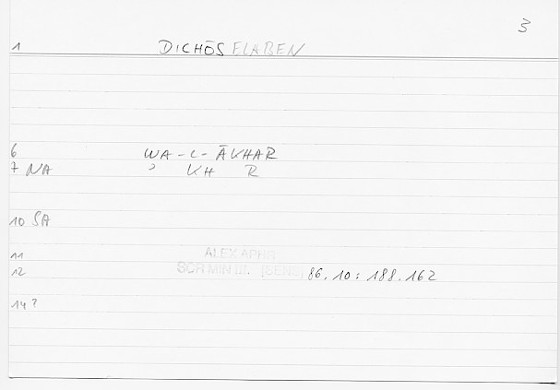 3
1 DICHŌS ELABEN
6 WA-L-ĀKHAR
7 NA ʾ KH R
10 SA
11 ALEX.APHR
12 SCR MIN III. (SENS) 86.10: 188.162
14 ?